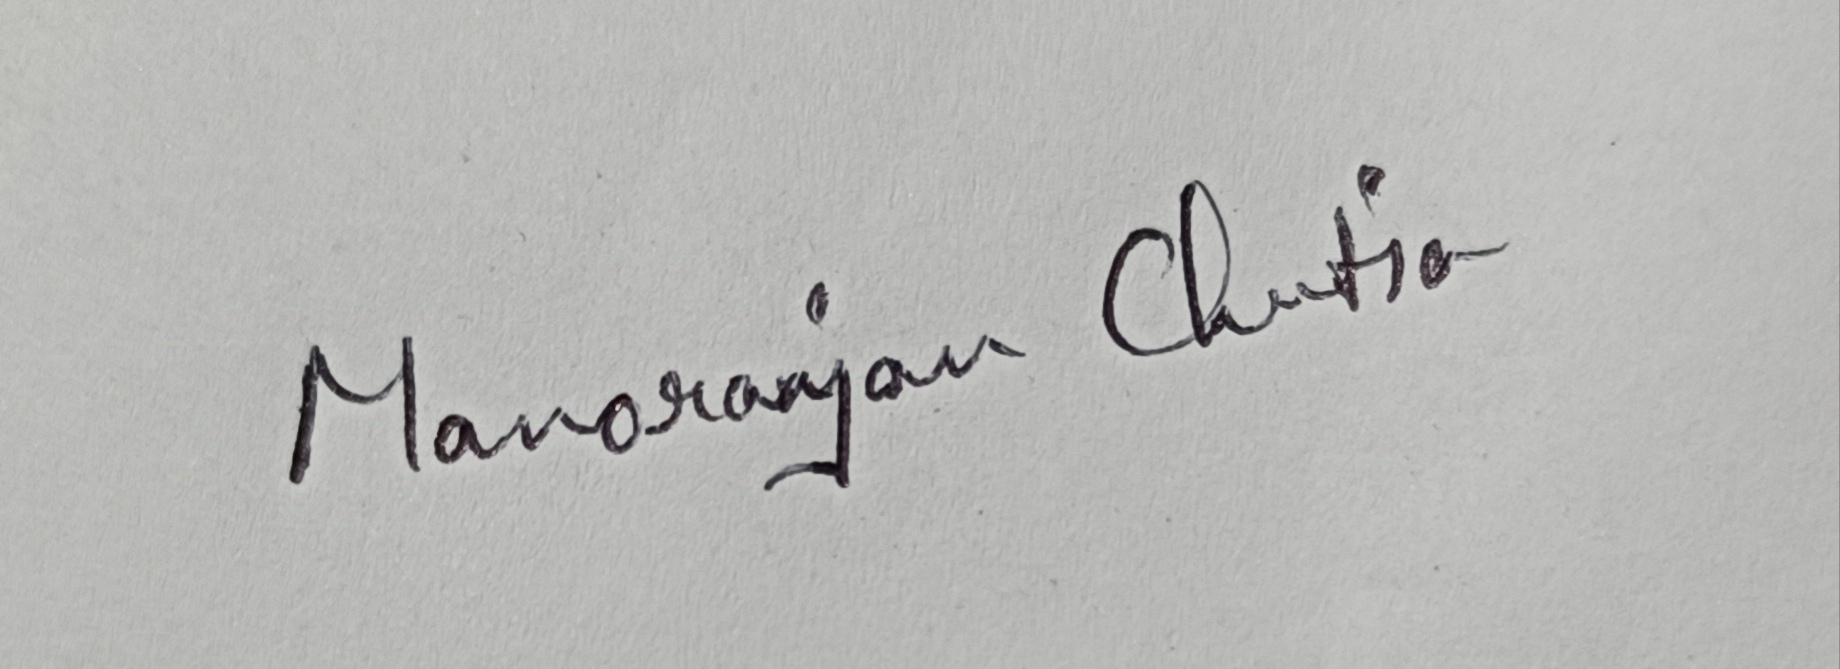 Manoranjan Chutia